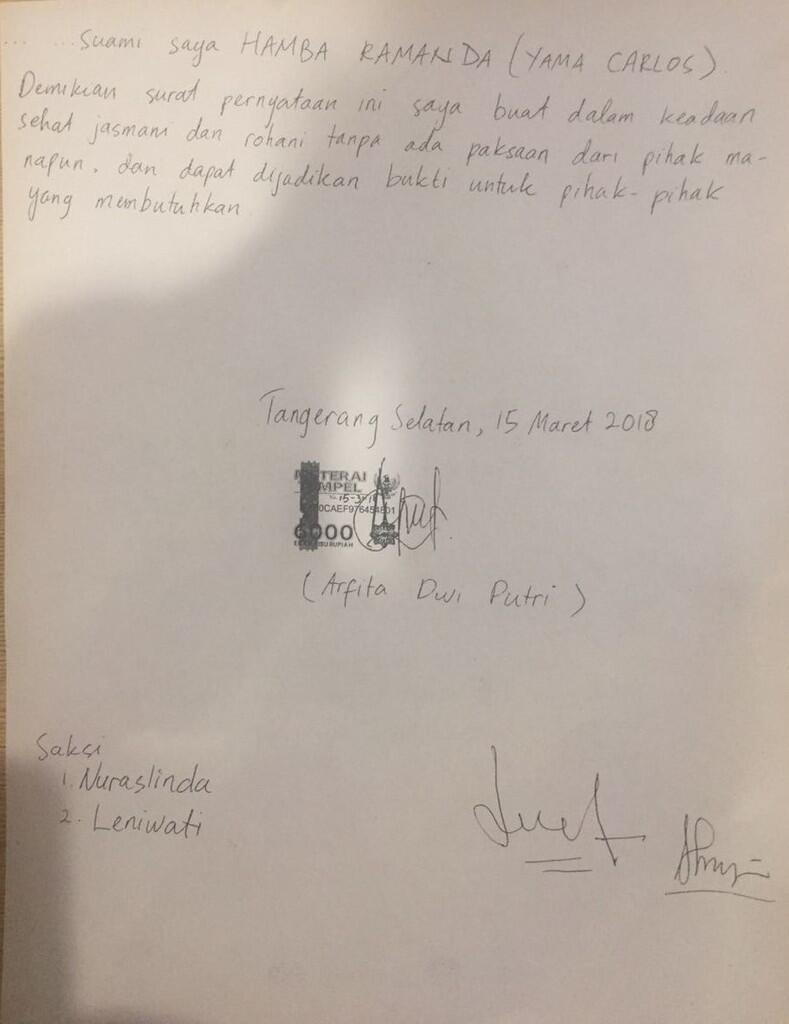 ... ... suami saya HAMBA RAMANDA (YAMA CARLOS).
Demikian surat pernyataan ini saya buat dalam keadaan
sehat jasmani dan rohani tanpa ada paksaan dari pihak ma-
napun. dan dapat dijadikan bukti untuk pihak-pihak
yang membutuhkan
Tangerang Selatan, 15 Maret 2018
TERAI
MPEL
6000
RIBU RUPIAH
(Arfita Dwi Putri)
Saksi
1. Nuraslinda
2. Leniwati